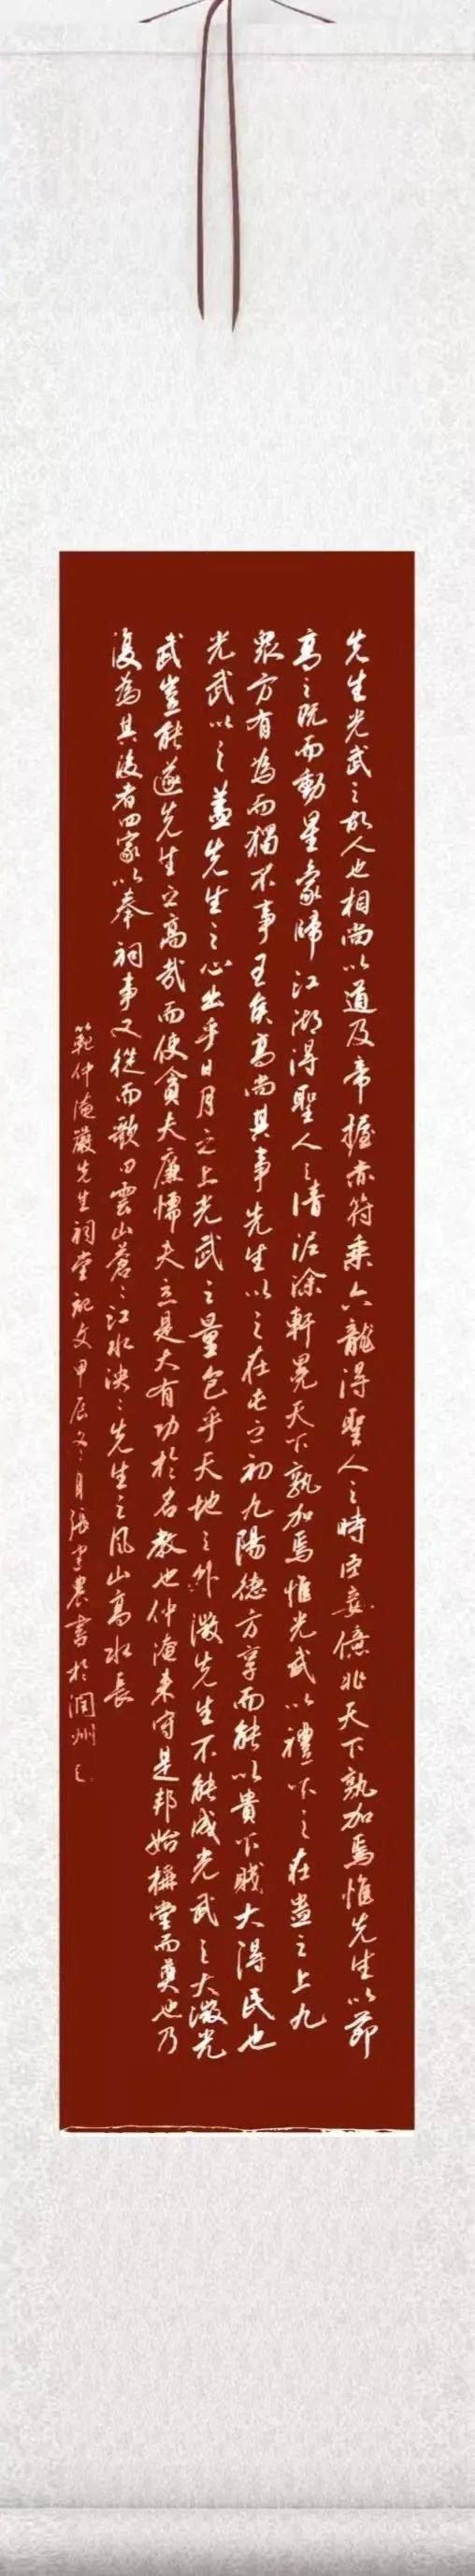 先生光武之故人也相尚以道及帝握赤符乘六龍得聖人之時臣妾億兆天下孰加焉惟先生以節
高之既而動星象歸江湖得聖人之清泥涂軒冕天下孰加焉惟光武以禮下之在蠱之上九
眾方有為而獨不事王侯高尚其事先生以之在屯之初九陽德方亨而能以貴下賤大得民也
光武以之蓋先生之心出乎日月之上光武之量包乎天地之外微先生不能成光武之大微光
武豈能遂先生之高哉而使貪夫廉懦夫立是大有功於名教也仲淹來守是邦始構堂而奠也乃
復為其後者四家以奉祠事又從而歌曰雲山蒼〻江水泱〻先生之風山高水長
範仲淹嚴先生祠堂記文甲辰冬月張農書於潤州